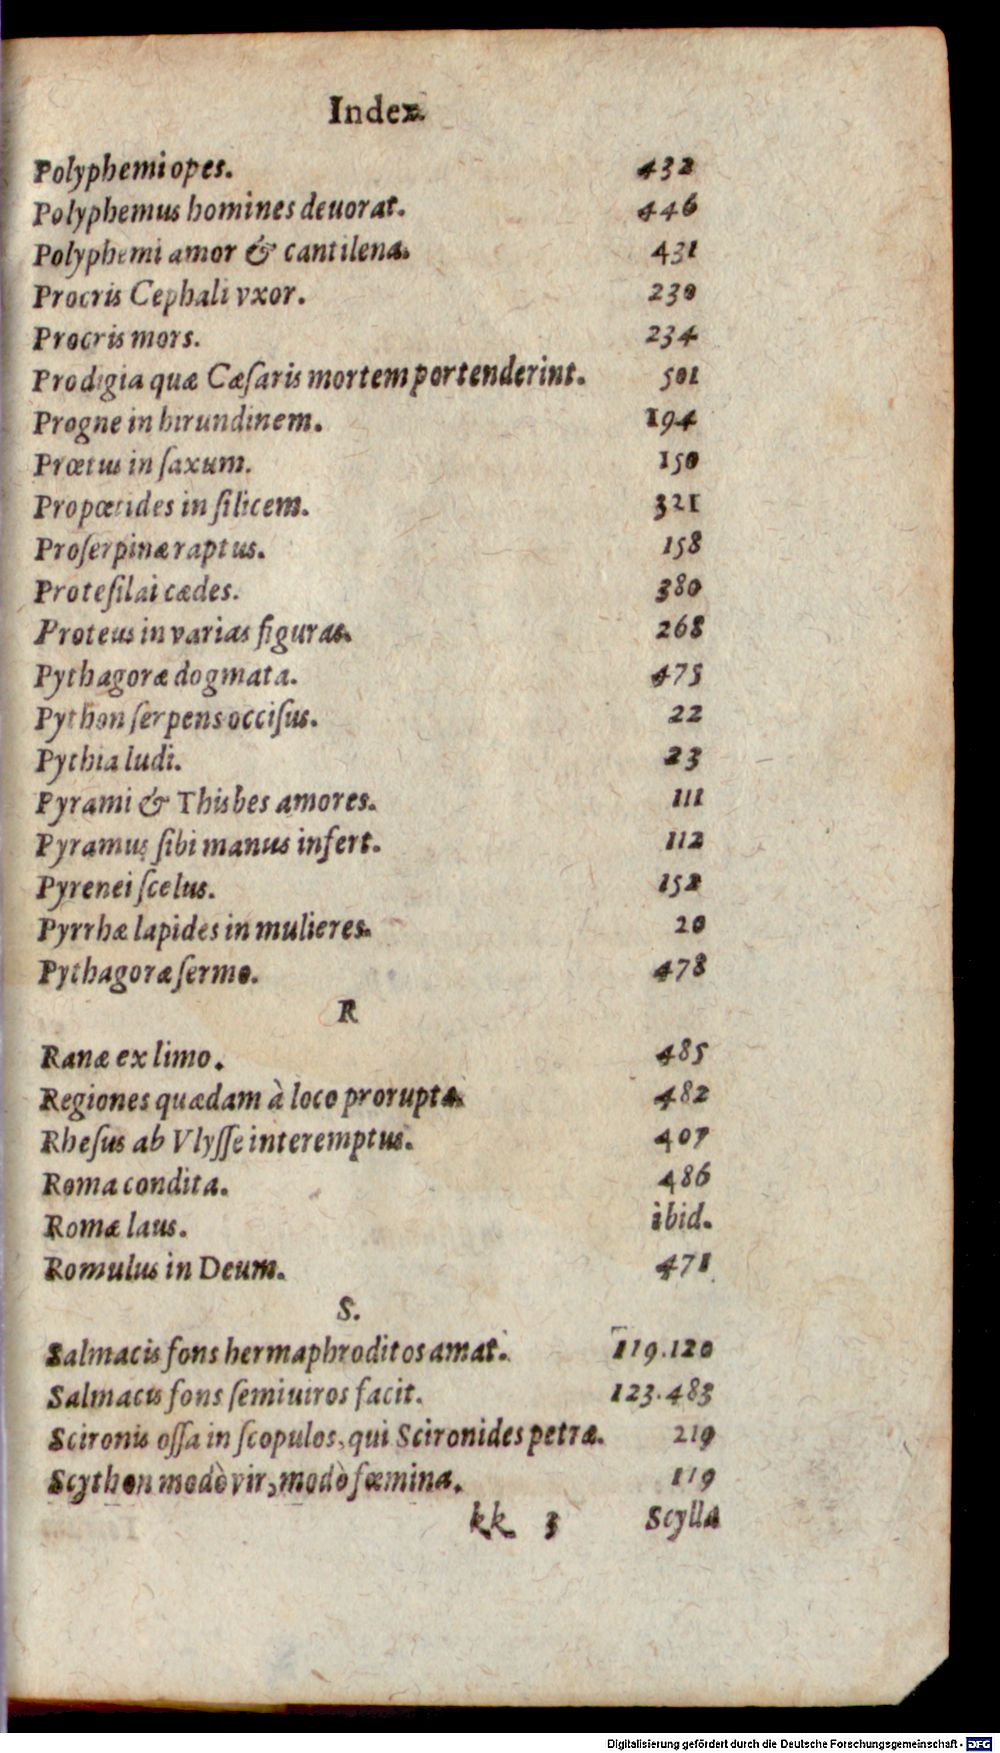 Index.
Polyphemi opes. 432
Polyphemus homines deuorat. 446
Polyphemi amor & cantilena. 431
Procris Cephali vxor. 230
Procris mors. 234
Prodigia quæ Cæſaris mortem portenderint. 501
Progne in hirundinem. 194
Prœtus in ſaxum. 150
Propœtides in ſilicem. 321
Proſerpinæ raptus. 158
Proteſilai cædes. 380
Proteus in varias figuras. 268
Pythagoræ dogmata. 475
Python ſerpens occiſus. 22
Pythia ludi. 23
Pyrami & Thisbes amores. 111
Pyramus ſibi manus infert. 112
Pyrenei ſcelus. 152
Pyrrhæ lapides in mulieres. 20
Pythagoræ ſermo. 478
R
Ranæ ex limo. 485
Regiones quædam à loco proruptæ. 482
Rheſus ab Vlyſſe interemptus. 407
Roma condita. 486
Romæ laus. ibid.
Romulus in Deum. 471
S.
Salmacis fons hermaphroditos amat. 119.120
Salmacis fons ſemiuiros facit. 123.483
Scironis oſſa in ſcopulos, qui Scironides petræ. 219
Scython modò vir, modò fœmina. 119
kk 3 Scylla
Digitalisierung gefördert durch die Deutsche Forschungsgemeinschaft - DFG